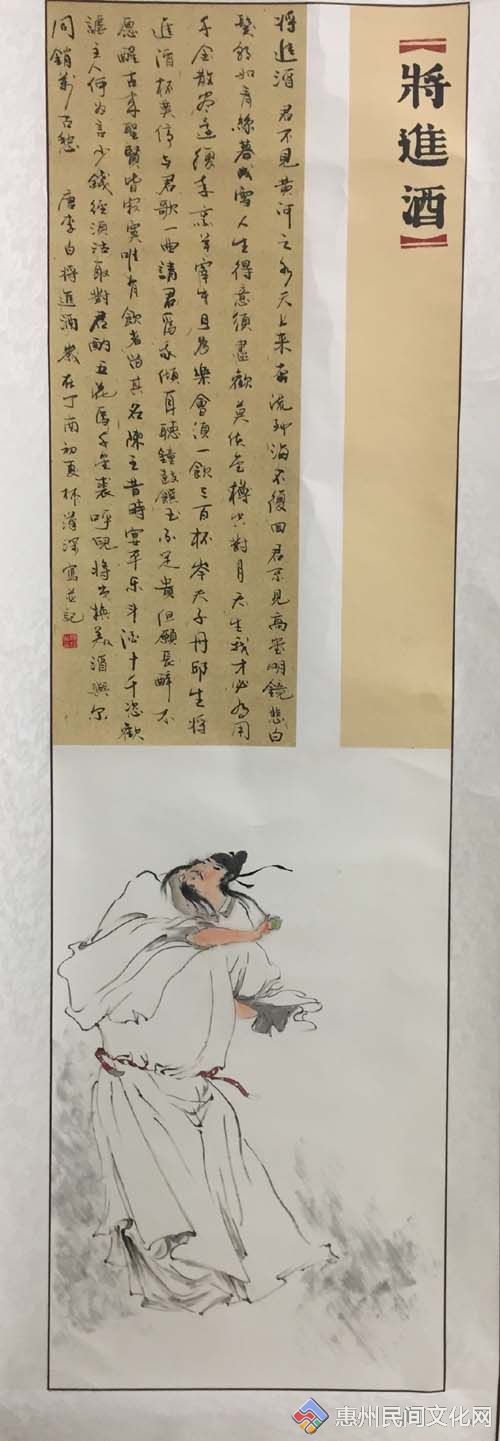 【將進酒】
将進酒 君不見黄河之水天上来奔流到海不復回君不見高堂明鏡悲白
髮朝如青絲暮成雪人生得意須盡歡莫使金樽空對月天生我才必有用
千金散盡還復来烹羊宰牛且为樂會須一飲三百杯岑夫子丹邱生将
進酒杯莫停与君歌一曲請君爲我傾耳聽鐘鼓饌玉不足貴但願長醉不
愿醒古来聖賢皆寂寞唯有飲者留其名陳王昔時宴平乐斗酒十千恣歡
謔主人何为言少錢徑須沽取對君酌五花馬千金裘呼兒将出換美酒與尔
同銷萬古愁 唐李白将進酒 歲在丁酉初夏林深寫並記
惠州民间文化网